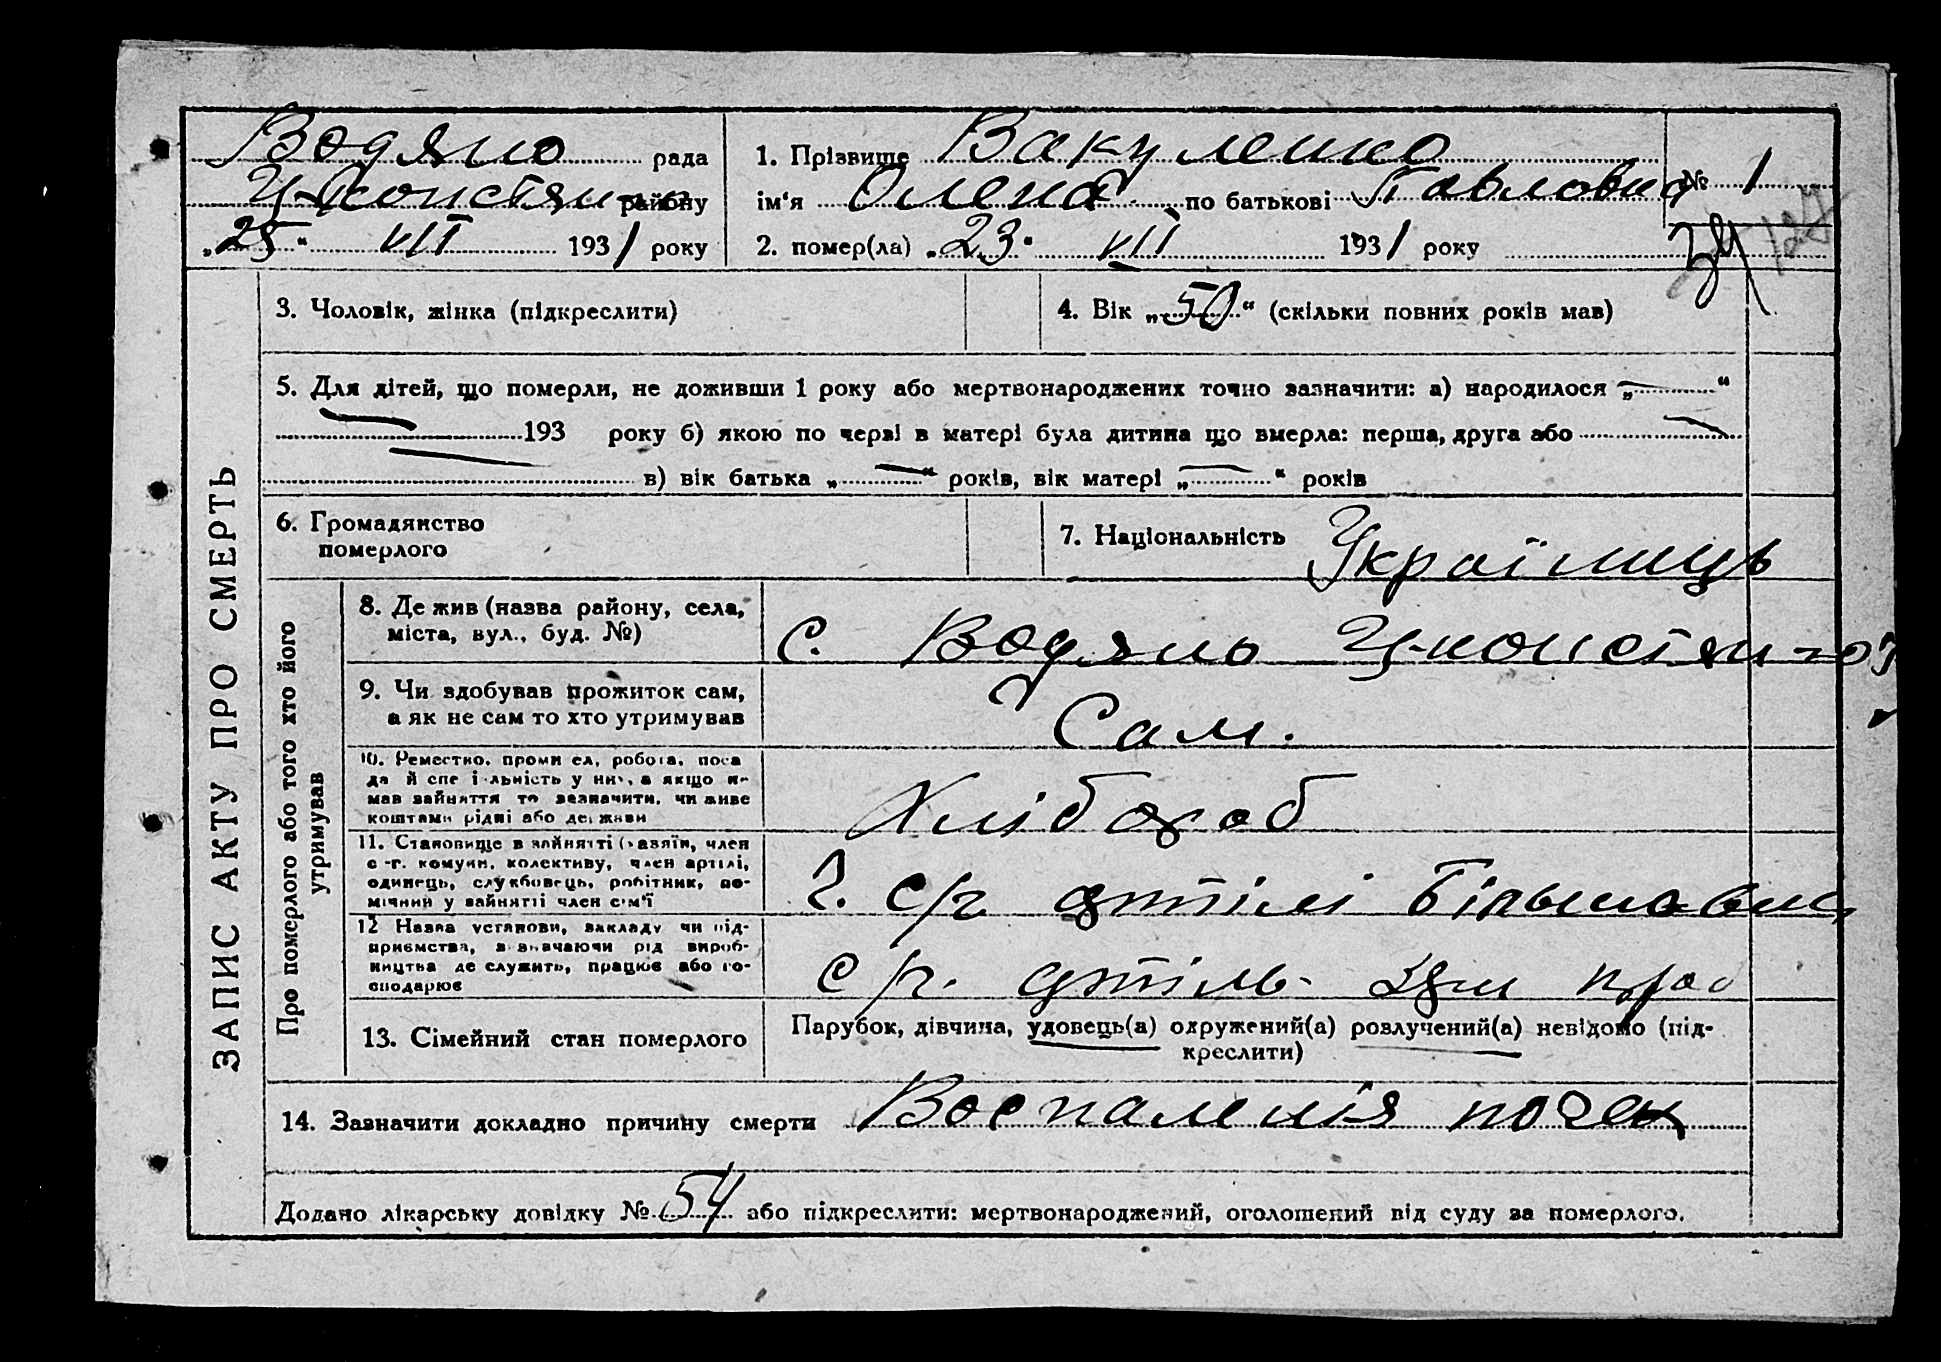 Водяно рада
Ц-Констян району
„25“ VII 1931 року
1. Прізвище Вакуленко
ім'я Олена по батькові Павловна
2. помер(ла) „23“ VII 1931 року
№ 1
127
ЗАПИС АКТУ ПРО СМЕРТЬ
3. Чоловік, жінка (підкреслити)
4. Вік „50“ (скільки повних років мав)
5. Для дітей, що померли, не доживши 1 року або мертвонароджених точно зазначити: а) народилося „ — “
— 193 року б) якою по черзі в матері була дитина що вмерла: перша, друга або —
— в) вік батька „ — “ років, вік матері „ — “ років
6. Громадянство
померлого
7. Національність Українць
Про померлого або того хто його
утримував
8. Де жив (назва району, села,
міста, вул., буд. №)
с. Водяно Ц-констян
9. Чи здобував прожиток сам,
а як не сам то хто утримував
Сам.
10. Ремество, промисел, робота, поса
да й спеціяльність у них, а якщо не
мав зайняття то зазначити, чи живе
коштами рідні або держави
Хлібороб
11. Становище в зайнятті (хазяїн, член
с-г. комуни, колективу, член артілі,
одинець, службовець, робітник, по-
мічний у зайнятті член сім'ї
Ч. с/г артілі Більшовик
12 Назва установи, закладу чи під-
приємства, зазначаючи рід вироб-
ництва де служить, працює або го-
сподарює
с/г. артіль
13. Сімейний стан померлого
Парубок, дівчина, удовець(а) одружений(а) розлучений(а) невідомо (під-
креслити)
14. Зазначити докладно причину смерти Воспаленія почек
Додано лікарську довідку № 54 або підкреслити: мертвонароджений, оголошений від суду за померлого.